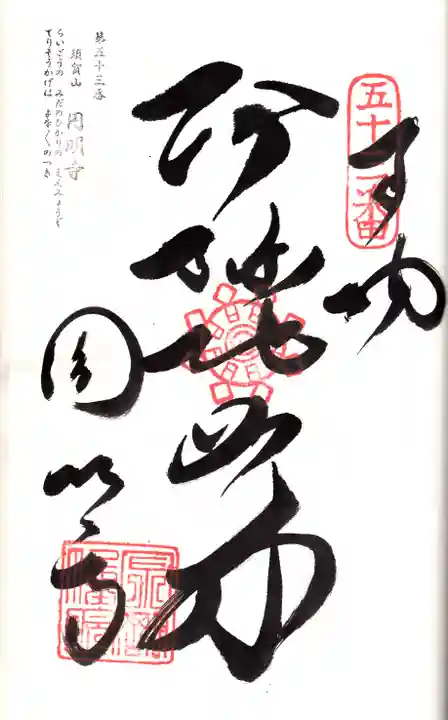 五十三番
奉納
阿弥陀堂
円明寺
第五十三番
須賀山
円明寺
らいごうの みだのひかりの えんみょうじ
てりそうかげは よな〱のつき